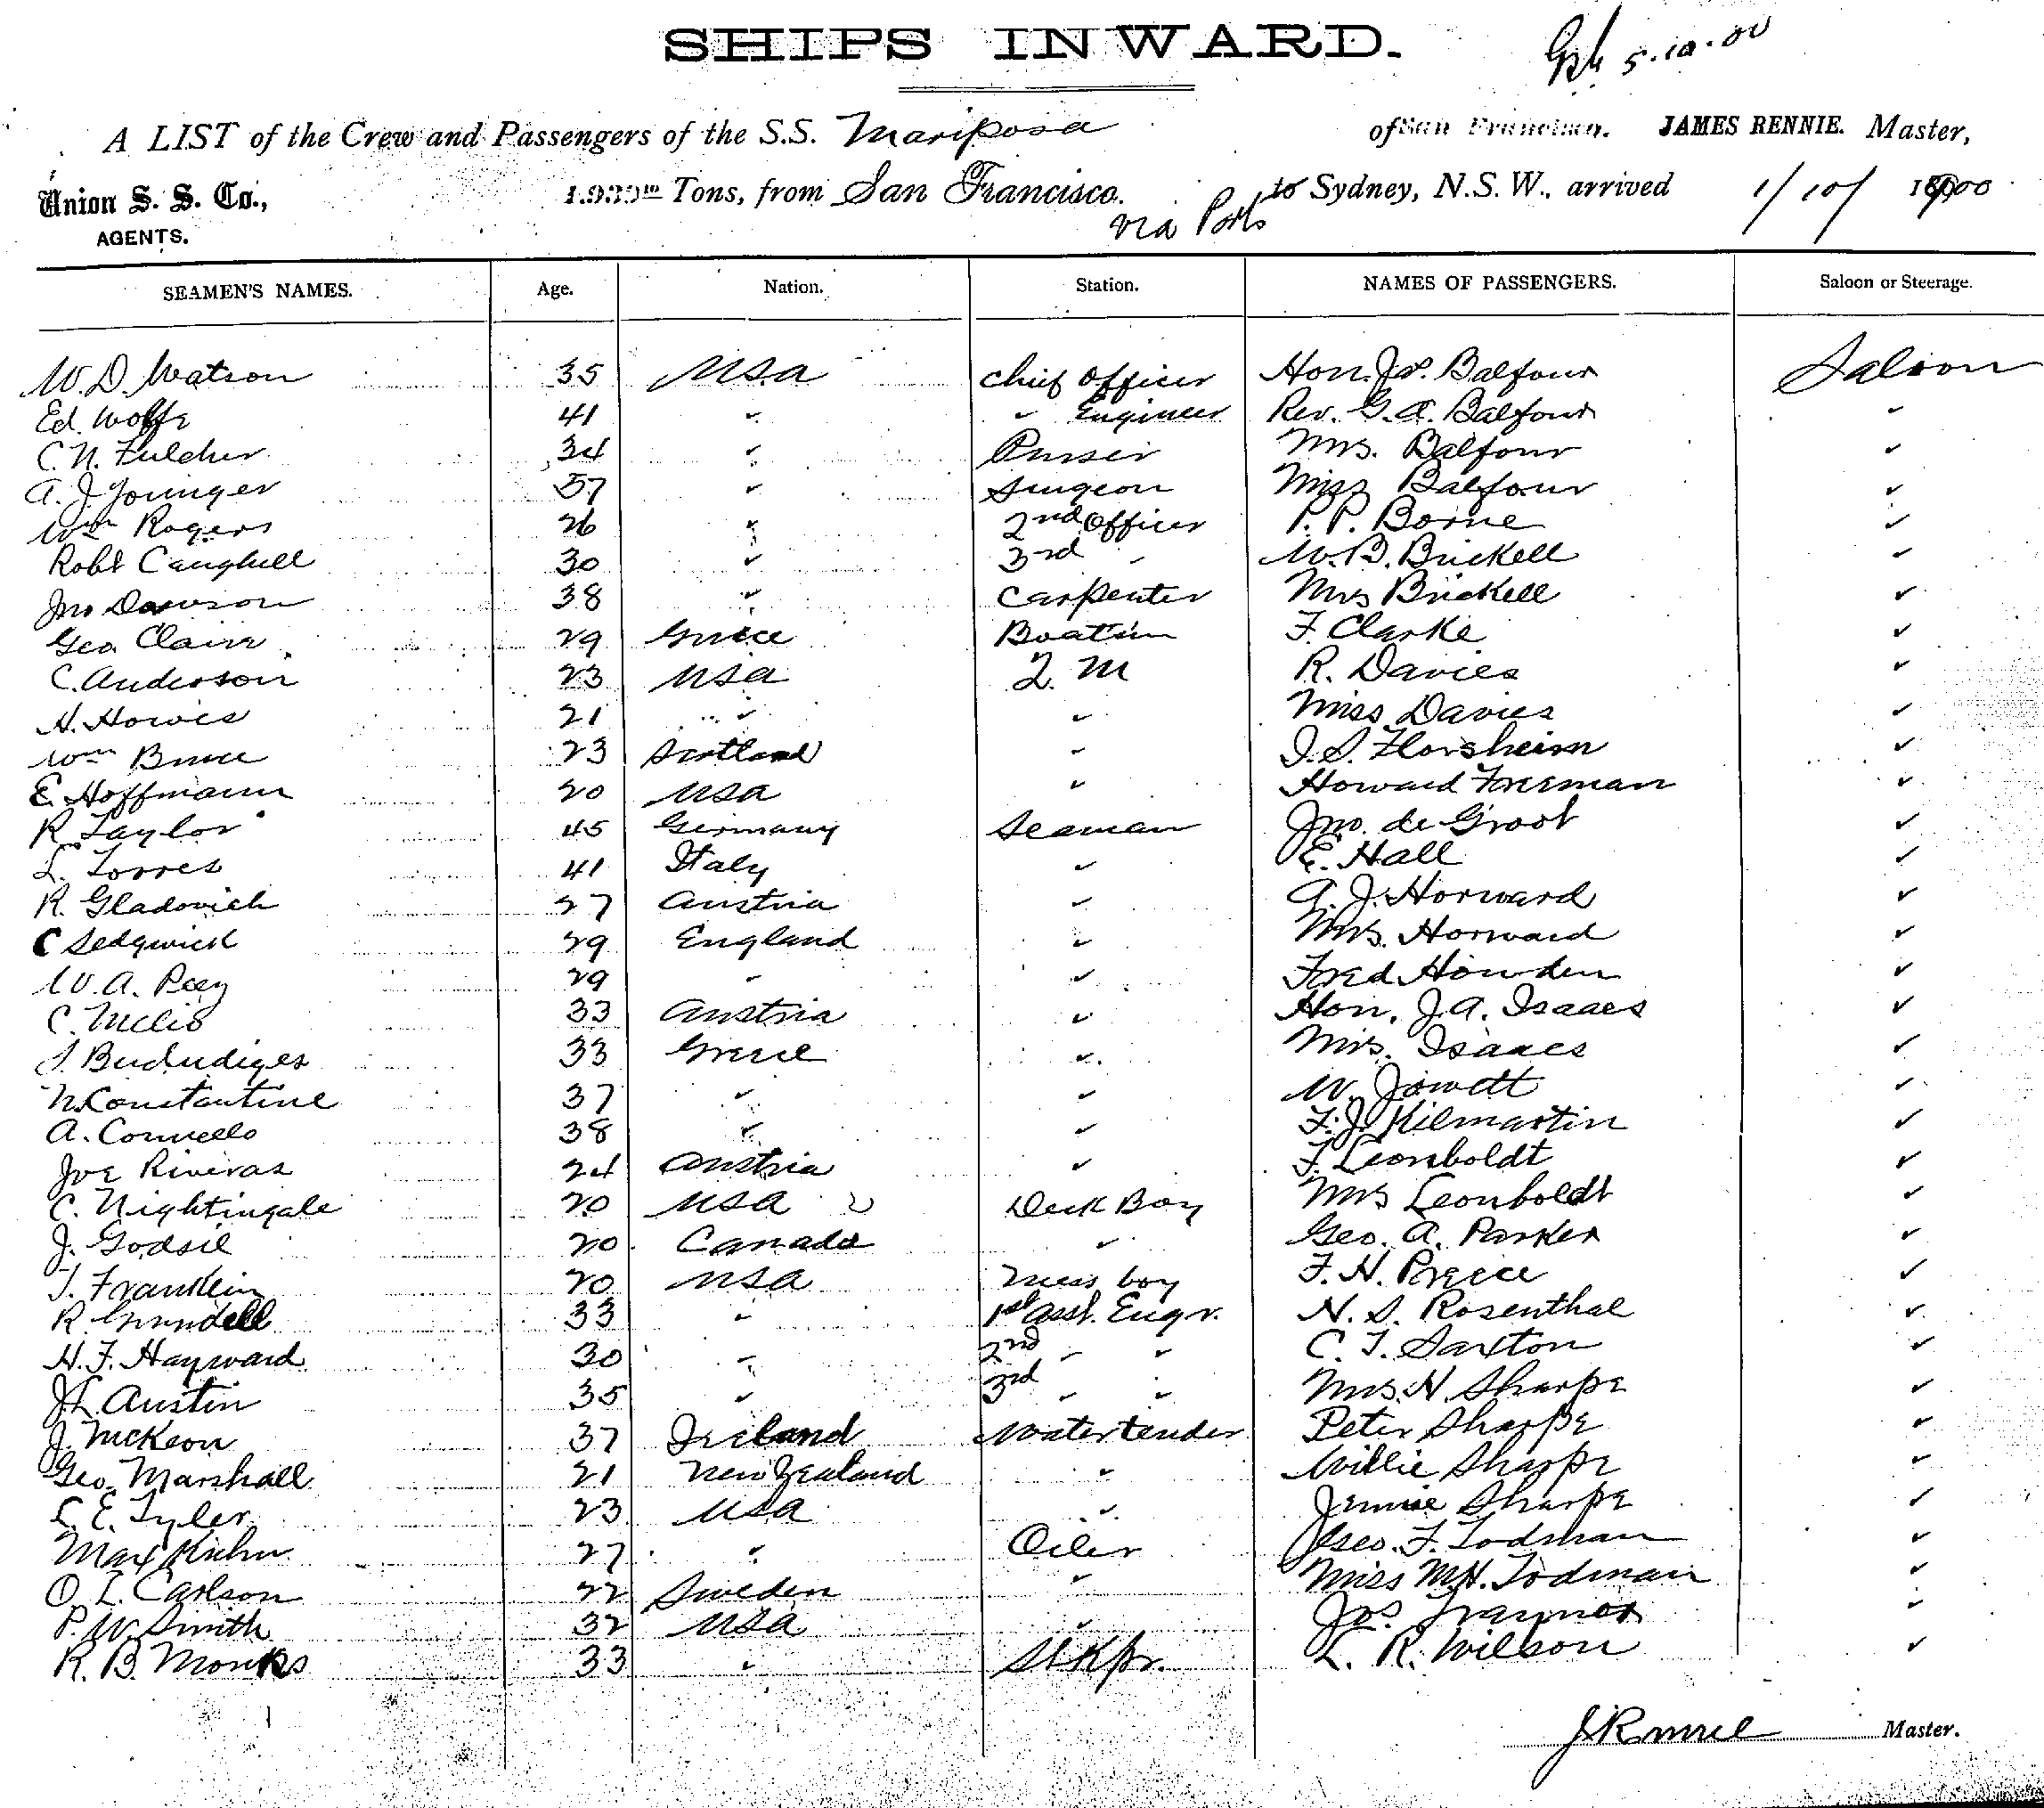 SHIPS INWARD.
5.10.00
A LIST of the Crew and Passengers of the S.S. Mariposa of San Francisco. JAMES RENNIE. Master,
Union S. S. Co., Tons, from San Francisco. to Sydney, N.S.W., arrived 1/10/1900
AGENTS. via Ports
SEAMEN'S NAMES. Age. Nation. Station. NAMES OF PASSENGERS. Saloon or Steerage.
W. D. Watson 35 USA Chief Officer Hon. Jas. Balfour Saloon
Ed. Wolfe 41 " " Engineer Rev. G. A. Balfour "
C. N. Fulcher 34 " Purser Mrs. Balfour "
A. J. Younger 57 " Surgeon Miss Balfour "
Wm Rogers 26 " 2nd Officer P. P. Borne "
Robt Caughell 30 " 3rd " W. B. Brickell "
Jno Dawson 38 " Carpenter Mrs Brickell "
Geo Claire 29 Greece Boatsun F. Clarke "
C. Anderson 23 USA Q. M R. Davies "
H. Howes 21 " " Miss Davies "
Wm Bruce 23 Scotland " I. S. Florsheim "
E. Hoffmann 20 USA " Howard Freeman "
R Taylor 45 Germany Seaman Jno. de Groot "
L. Torres 41 Italy " E. Hall "
R. Gladovich 27 Austria " A. J. Horward "
C Sedgwick 29 England " Mrs. Horward "
W. A. Peey 29 " " Fred Howden "
C. Melis 33 Austria " Hon. J. A. Isaacs "
33 Greece " Mrs. Isaacs "
N. Constantine 37 " " W. Jowett "
A. 38 " " F. J. Kilmartin "
Joe Riveras 24 Austria " F. Leonboldt "
C. Nightingale 20 USA Deck Boy Mrs Leonboldt "
J. Godsil 20 Canada " Geo. A. Parker "
T. Franklin 20 USA Mess boy F. H. Preece "
R. Grundell 33 " 1st Asst. Engr. N. S. Rosenthal "
H. F. Hayward 30 " 2nd " " C. T. Saxton "
J. L. Austin 35 " 3rd " " Mrs. H. Sharpe "
J. McKeon 37 Ireland Watertender Peter Sharpe "
Geo. Marshall 21 New Zealand " Willie Sharpe "
L. E. Tyler 23 USA " Jennie Sharpe "
Max Kuhn 27 " Oiler Geo. F. Todman "
O. L. Carlson 22 Sweden " Miss M. H. Todman "
P. W. Smith 32 USA " Jos Traynor "
R. B. Monks 33 " StKpr. L. R. Wilson "
J Rennie Master.